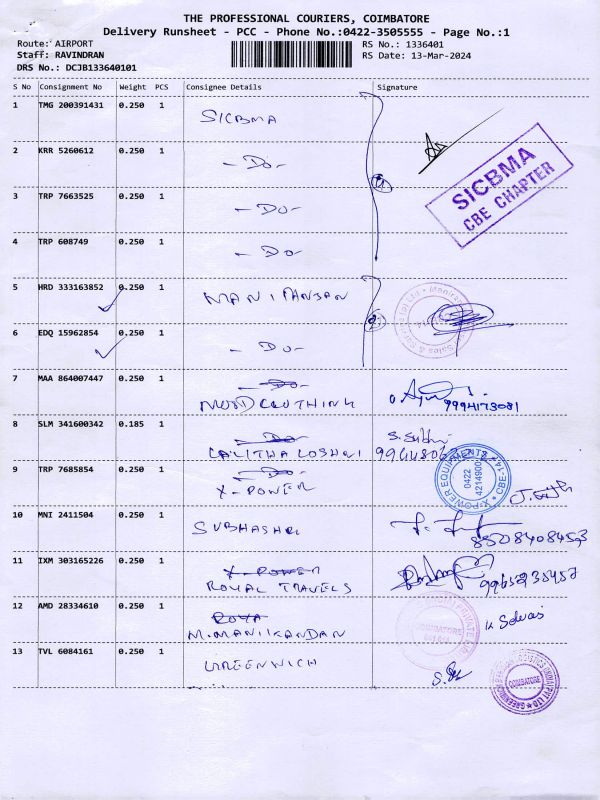 THE PROFESSIONAL COURIERS, COIMBATORE
Delivery Runsheet - PCC - Phone No.:0422-3505555 - Page No.:1
Route: AIRPORT RS No.: 1336401
Staff: RAVINDRAN RS Date: 13-Mar-2024
DRS No.: DCJB133640101
S No Consignment No Weight PCS Consignee Details Signature
1 TMG 200391431 0.250 1 SICBMA
2 KRR 5260612 0.250 1 - Do -
SICBMA
CBE CHAPTER
3 TRP 7663525 0.250 1 - Do -
4 TRP 608749 0.250 1 - Do -
5 HRD 333163852 0.250 1
6 EDQ 15962854 0.250 1 - Do -
7 MAA 864007447 0.250 1 Do
9994173081
8 SLM 341600342 0.185 1 Do
LALITHA LOSHNI
9 TRP 7685854 0.250 1 Do
X-POWER
X-POWER EQUIPMENTS
0422
CBE-14
10 MNI 2411504 0.250 1 SUBHASHRI
8508408453
11 IXM 303165226 0.250 1 X-POWER
ROYAL TRAVELS
12 AMD 28334610 0.250 1 ROYA
M.MANIKANDAN
COIMBATORE
13 TVL 6084161 0.250 1 GREENWICH
COIMBATORE